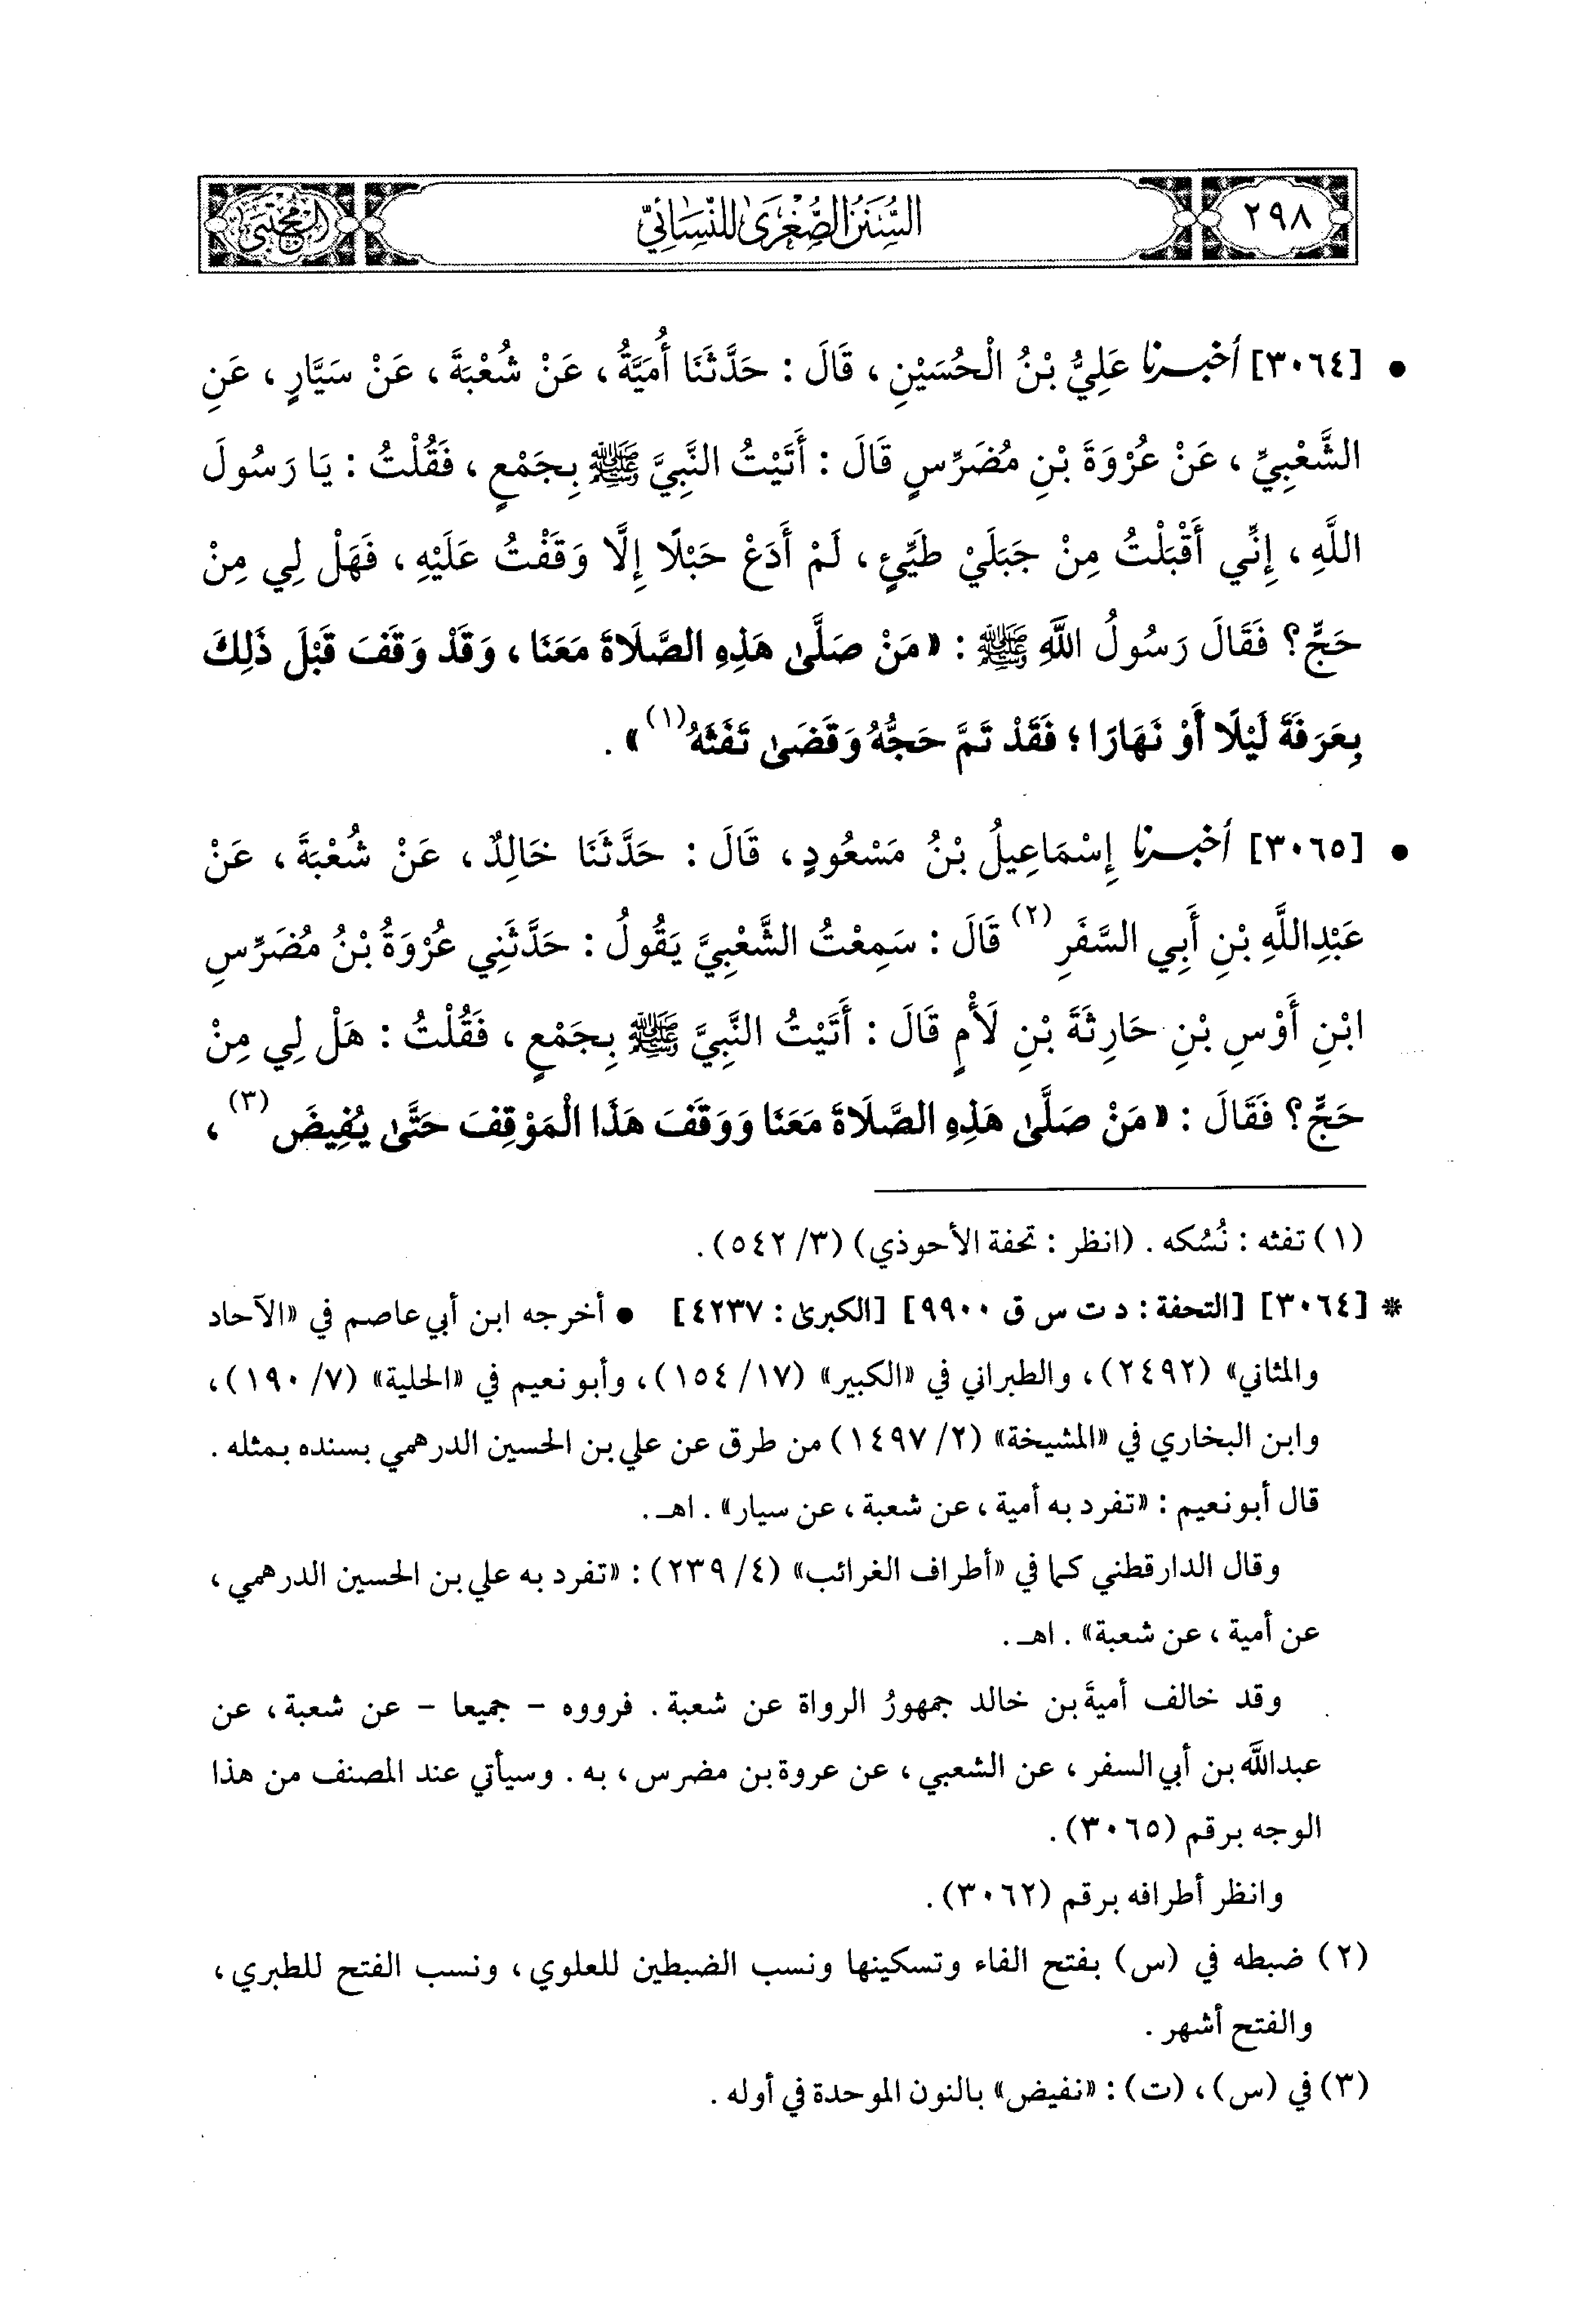 ٢٩٨
السُّنَنُ الصُّغْرَىٰ لِلنَّسَائِيِّ
المُجْتَبَى
• [٣٠٦٤] أخبرنا عَلِيُّ بْنُ الْحُسَيْنِ، قَالَ: حَدَّثَنَا أُمَيَّةُ، عَنْ شُعْبَةَ، عَنْ سَيَّارٍ، عَنِ
الشَّعْبِيِّ، عَنْ عُرْوَةَ بْنِ مُضَرِّسٍ قَالَ: أَتَيْتُ النَّبِيَّ ﷺ بِجَمْعٍ، فَقُلْتُ: يَا رَسُولَ
اللَّهِ، إِنِّي أَقْبَلْتُ مِنْ جَبَلَيْ طَيِّئٍ، لَمْ أَدَعْ حَبْلًا إِلَّا وَقَفْتُ عَلَيْهِ، فَهَلْ لِي مِنْ
حَجٍّ؟ فَقَالَ رَسُولُ اللَّهِ ﷺ: «مَنْ صَلَّىٰ هَذِهِ الصَّلَاةَ مَعَنَا، وَقَدْ وَقَفَ قَبْلَ ذَلِكَ
بِعَرَفَةَ لَيْلًا أَوْ نَهَارًا؛ فَقَدْ تَمَّ حَجُّهُ وَقَضَىٰ تَفَثَهُ(١)».
• [٣٠٦٥] أخبرنا إِسْمَاعِيلُ بْنُ مَسْعُودٍ، قَالَ: حَدَّثَنَا خَالِدٌ، عَنْ شُعْبَةَ، عَنْ
عَبْدِاللَّهِ بْنِ أَبِي السَّفَرِ(٢) قَالَ: سَمِعْتُ الشَّعْبِيَّ يَقُولُ: حَدَّثَنِي عُرْوَةُ بْنُ مُضَرِّسِ
ابْنِ أَوْسِ بْنِ حَارِثَةَ بْنِ لَأْمٍ قَالَ: أَتَيْتُ النَّبِيَّ ﷺ بِجَمْعٍ، فَقُلْتُ: هَلْ لِي مِنْ
حَجٍّ؟ فَقَالَ: «مَنْ صَلَّىٰ هَذِهِ الصَّلَاةَ مَعَنَا وَوَقَفَ هَذَا الْمَوْقِفَ حَتَّىٰ يُفِيضَ(٣)،
(١) تفثه: نُسُكه. (انظر: تحفة الأحوذي) (٣/ ٥٤٢).
* [٣٠٦٤] [التحفة: د ت س ق ٩٩٠٠] [الكبرى: ٤٢٣٧] • أخرجه ابن أبي عاصم في «الآحاد
والمثاني» (٢٤٩٢)، والطبراني في «الكبير» (١٧/ ١٥٤)، وأبو نعيم في «الحلية» (٧/ ١٩٠)،
وابن البخاري في «المشيخة» (٢/ ١٤٩٧) من طرق عن علي بن الحسين الدرهمي بسنده بمثله.
قال أبو نعيم: «تفرد به أمية، عن شعبة، عن سيار». اهـ.
وقال الدارقطني كما في «أطراف الغرائب» (٤/ ٢٣٩): «تفرد به علي بن الحسين الدرهمي،
عن أمية، عن شعبة». اهـ.
وقد خالف أميةَ بن خالد جمهورُ الرواة عن شعبة. فرووه - جميعا - عن شعبة، عن
عبداللَّه بن أبي السفر، عن الشعبي، عن عروة بن مضرس، به. وسيأتي عند المصنف من هذا
الوجه برقم (٣٠٦٥).
وانظر أطرافه برقم (٣٠٦٢).
(٢) ضبطه في (س) بفتح الفاء وتسكينها ونسب الضبطين للعلوي، ونسب الفتح للطبري،
والفتح أشهر.
(٣) في (س)، (ت): «نفيض» بالنون الموحدة في أوله.